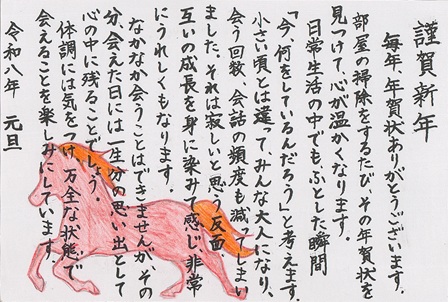 謹賀新年
毎年、年賀状ありがとうございます。
部屋の掃除をするたび、その年賀状を
見つけて、心が温かくなります。
日常生活の中でも、ふとした瞬間
「今、何をしているんだろう」と考えます。
小さい頃とは違ってみんな大人になり、
会う回数、会話の頻度も減ってしまい
ました。それは寂しいと思う反面
互いの成長を身に染みて感じ非常
にうれしくもなります。
なかなか会うことはできませんが、その
分、会えた日には一生分の思い出として
心の中に残ることでしょう。
体調には気をつけ、万全な状態で
会えることを楽しみにしています。
令和八年 元旦